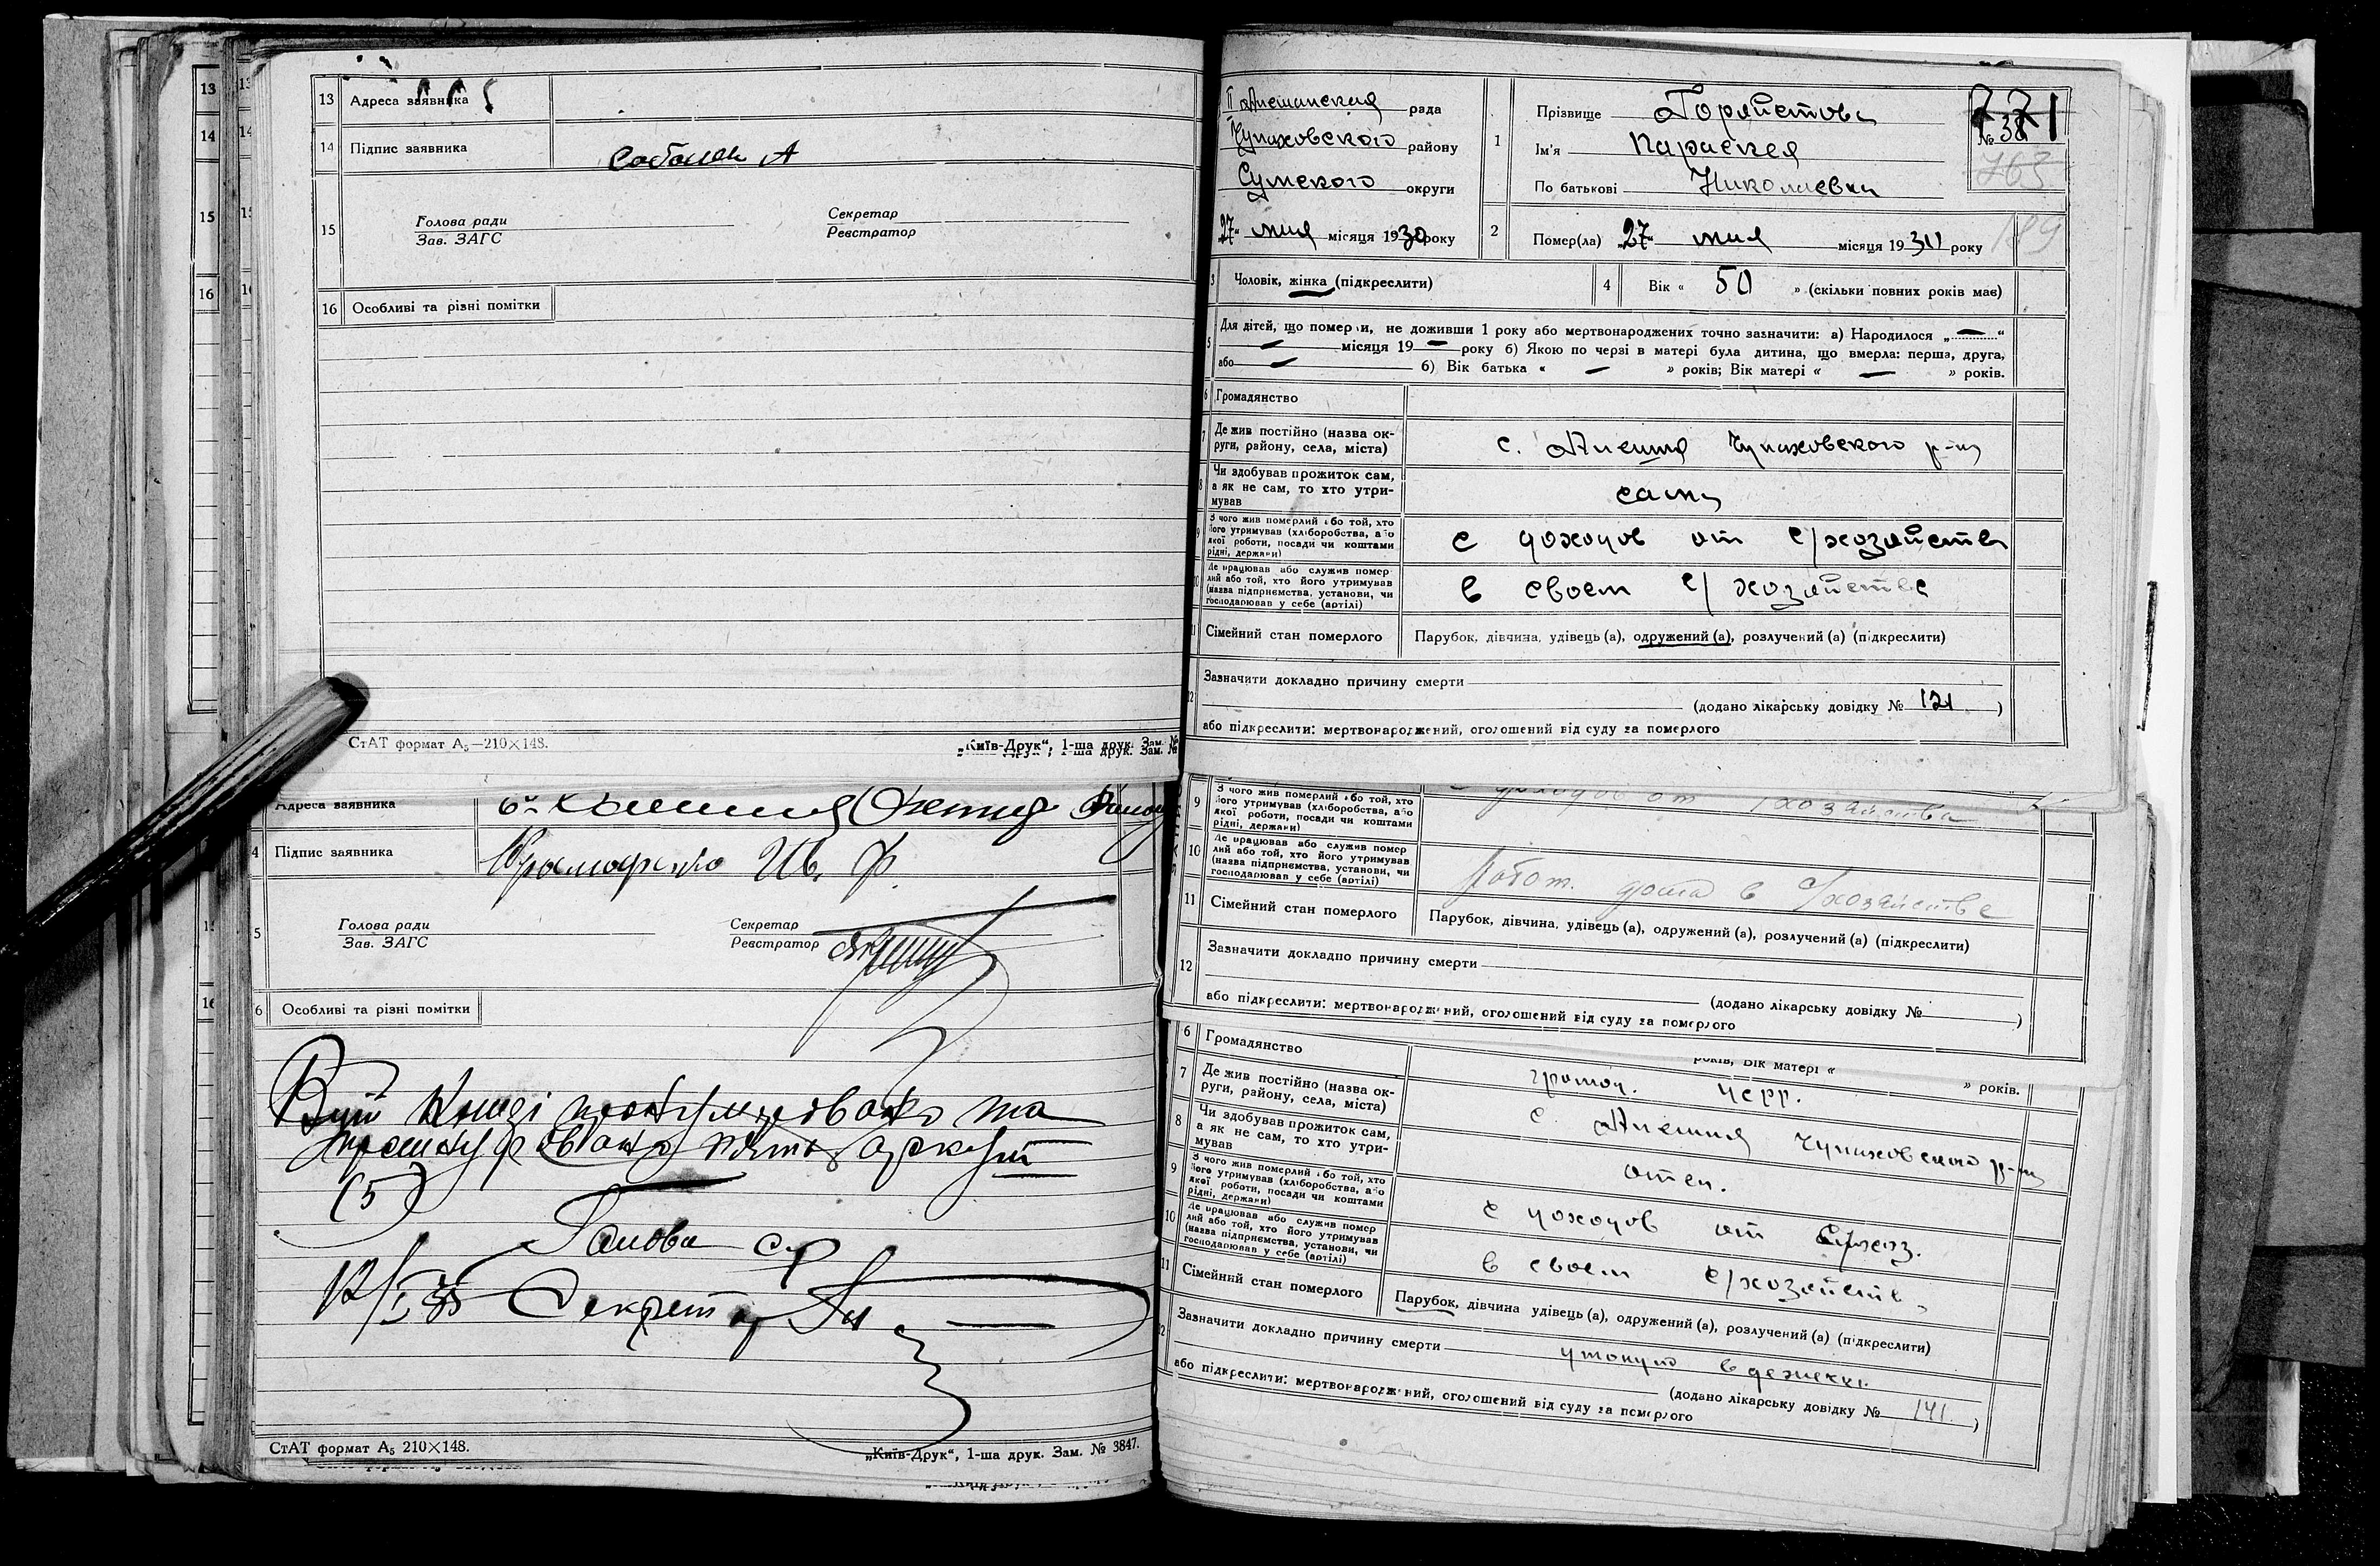 13 Адреса заявника
14 Підпис заявника
15 Голова ради
Зав. ЗАГС
Секретар
Реєстратор
16 Особливі та різні помітки
СтАТ формат А₅—210×148.
„Київ-Друк“, 1-ша друк. Зам. №
Адреса заявника
4 Підпис заявника Ив. Ф.
5 Голова ради
Зав. ЗАГС
Секретар
Реєстратор
6 Особливі та різні помітки
та
(5)
Голова с/р
Секретар
СтАТ формат А₅ 210×148.
„Київ-Друк“, 1-ша друк. Зам. № 3847.
рада
Чупаховского району
Сумского округи
„27“ мая місяця 1930 року
1 Прізвище
Ім'я Параскея
По батькові Николаевна
№ 38
771
763
2 Помер(ла) „27“ мая місяця 1930 року
189
3 Чоловік, жінка (підкреслити)
4 Вік « 50 » (скільки повних років має)
5 Для дітей, що померли, не доживши 1 року або мертвонароджених точно зазначити: а) Народилося „ — “
— місяця 19 — року б) Якою по черзі в матері була дитина, що вмерла: перша, друга,
або — б) Вік батька « — » років; Вік матері « — » років.
6 Громадянство
7 Де жив постійно (назва ок-
руги, району, села, міста)
с. Алешня Чупаховского р-на
8 Чи здобував прожиток сам,
а як не сам, то хто утри-
мував
сама
9 З чого жив померлий або той, хто
його утримував (хліборобства, або
якої роботи, посади чи коштами
рідні, держави)
с доходов от с/хозяйства
10 Де працював або служив помер
лий або той, хто його утримував
(назва підприємства, установи, чи
господарював у себе (артілі)
в своем с/хозяйстве
11 Сімейний стан померлого Парубок, дівчина, удівець (а), одружений (а), розлучений (а) (підкреслити)
12 Зазначити докладно причину смерти
(додано лікарську довідку № 121 )
або підкреслити: мертвонароджений, оголошений від суду за померлого
9 З чого жив померлий або той, хто
його утримував (хліборобства, або
якої роботи, посади чи коштами
рідні, держави)
с доходов от с/хозяйства
10 Де працював або служив помер
лий або той, хто його утримував
(назва підприємства, установи, чи
господарював у себе (артілі)
Работ. дома в с/хозяйстве
11 Сімейний стан померлого Парубок, дівчина, удівець (а), одружений (а), розлучений (а) (підкреслити)
12 Зазначити докладно причину смерти
(додано лікарську довідку № )
або підкреслити: мертвонароджений, оголошений від суду за померлого
років, Вік матері « » років.
6 Громадянство
7 Де жив постійно (назва ок-
руги, району, села, міста)
с. Алешня Чупаховского р-на
8 Чи здобував прожиток сам,
а як не сам, то хто утри-
мував
отец.
9 З чого жив померлий або той, хто
його утримував (хліборобства, або
якої роботи, посади чи коштами
рідні, держави)
с доходов от с/хоз.
10 Де працював або служив помер
лий або той, хто його утримував
(назва підприємства, установи, чи
господарював у себе (артілі)
в своем с/хозяйстве
11 Сімейний стан померлого Парубок, дівчина удівець (а), одружений (а), розлучений (а) (підкреслити)
12 Зазначити докладно причину смерти
(додано лікарську довідку № 141. )
або підкреслити: мертвонароджений, оголошений від суду за померлого